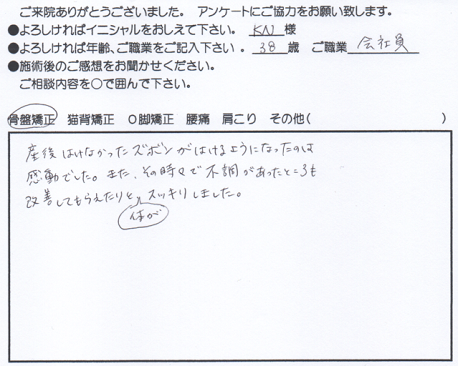 ご来院ありがとうございました。 アンケートにご協力をお願い致します。
●よろしければイニシャルをおしえて下さい。 K.N 様
●よろしければ年齢、ご職業をご記入下さい . 38 歳 ご職業 会社員
●施術後のご感想をお聞かせください。
ご相談内容を○で囲んで下さい。
骨盤矯正 猫背矯正 O脚矯正 腰痛 肩こり その他( )
産後はけなかったズボンがはけるようになったのは
感動でした。また、その時々で不調があったところも
改善してもらえたりと、スッキリしました。
体が